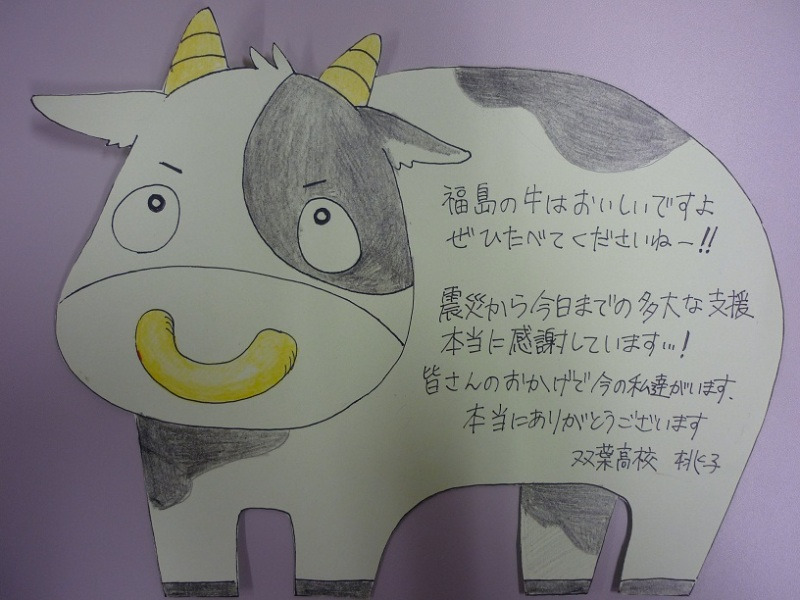 福島の牛はおいしいですよ
ぜひたべてくださいねー!!
震災から今日までの多大な支援
本当に感謝しています…!
皆さんのおかげで今の私達がいます、
本当にありがとうございます
双葉高校 桃子